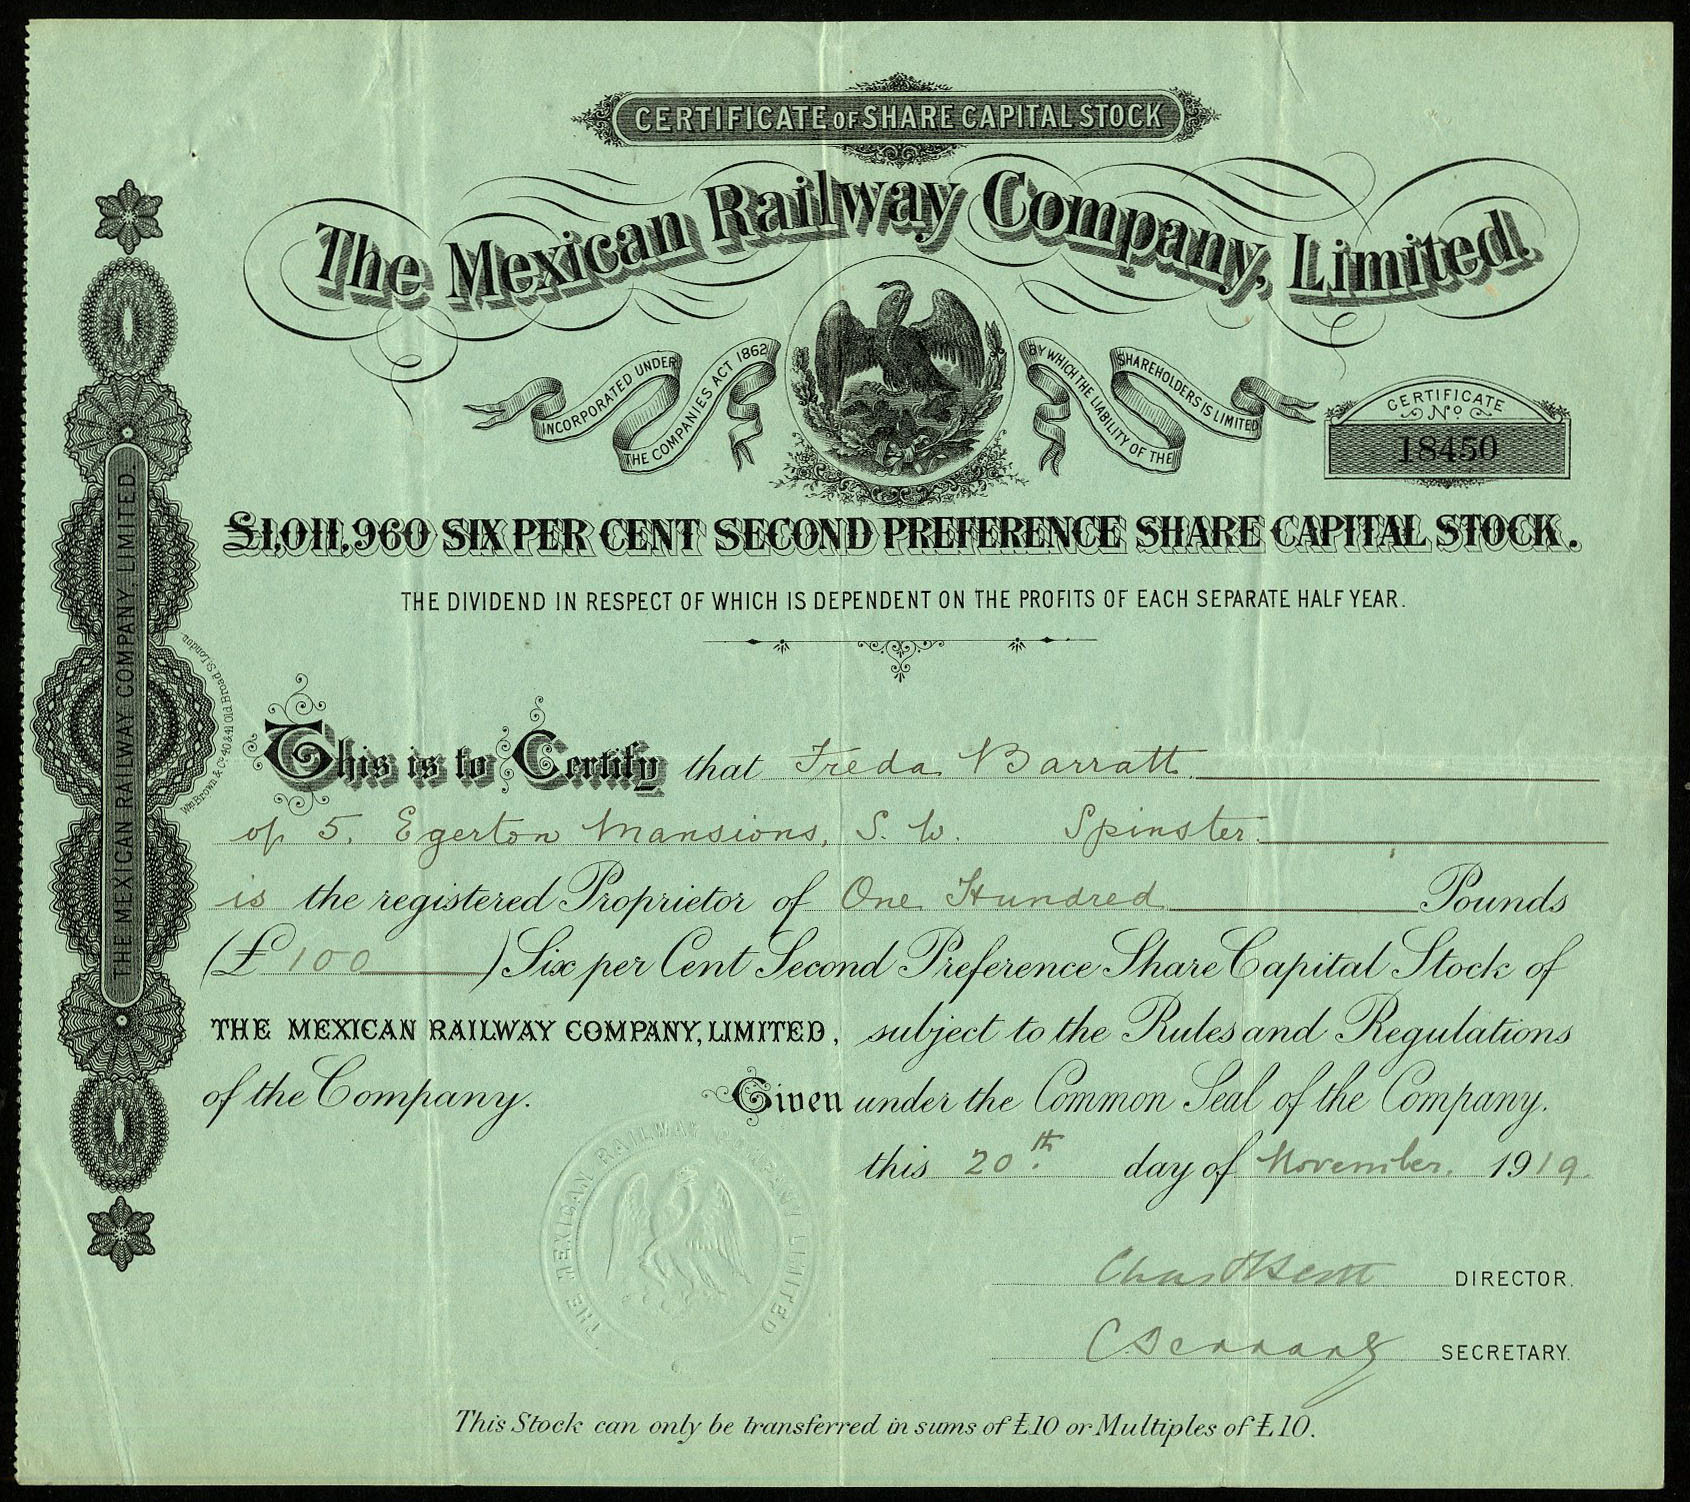 CERTIFICATE OF SHARE CAPITAL STOCK
The Mexican Railway Company, Limited.
INCORPORATED UNDER THE COMPANIES ACT 1862
BY WHICH THE LIABILITY OF THE SHAREHOLDERS IS LIMITED
CERTIFICATE
No.
18450
£1,011,960 SIX PER CENT SECOND PREFERENCE SHARE CAPITAL STOCK.
THE DIVIDEND IN RESPECT OF WHICH IS DEPENDENT ON THE PROFITS OF EACH SEPARATE HALF YEAR.
This is to Certify that Freda Barratt
of 5, Egerton Mansions, S. W. Spinster.
is the registered Proprietor of One Hundred Pounds
(£ 100 ) Six per Cent Second Preference Share Capital Stock of
THE MEXICAN RAILWAY COMPANY, LIMITED, subject to the Rules and Regulations
of the Company. Given under the Common Seal of the Company.
this 20th. day of November. 1919.
DIRECTOR.
SECRETARY.
This Stock can only be transferred in sums of £10 or Multiples of £10.
THE MEXICAN RAILWAY COMPANY, LIMITED.
Wm. Brown & Co. 40 & 41 Old Broad St. London.
THE MEXICAN RAILWAY COMPANY LIMITED